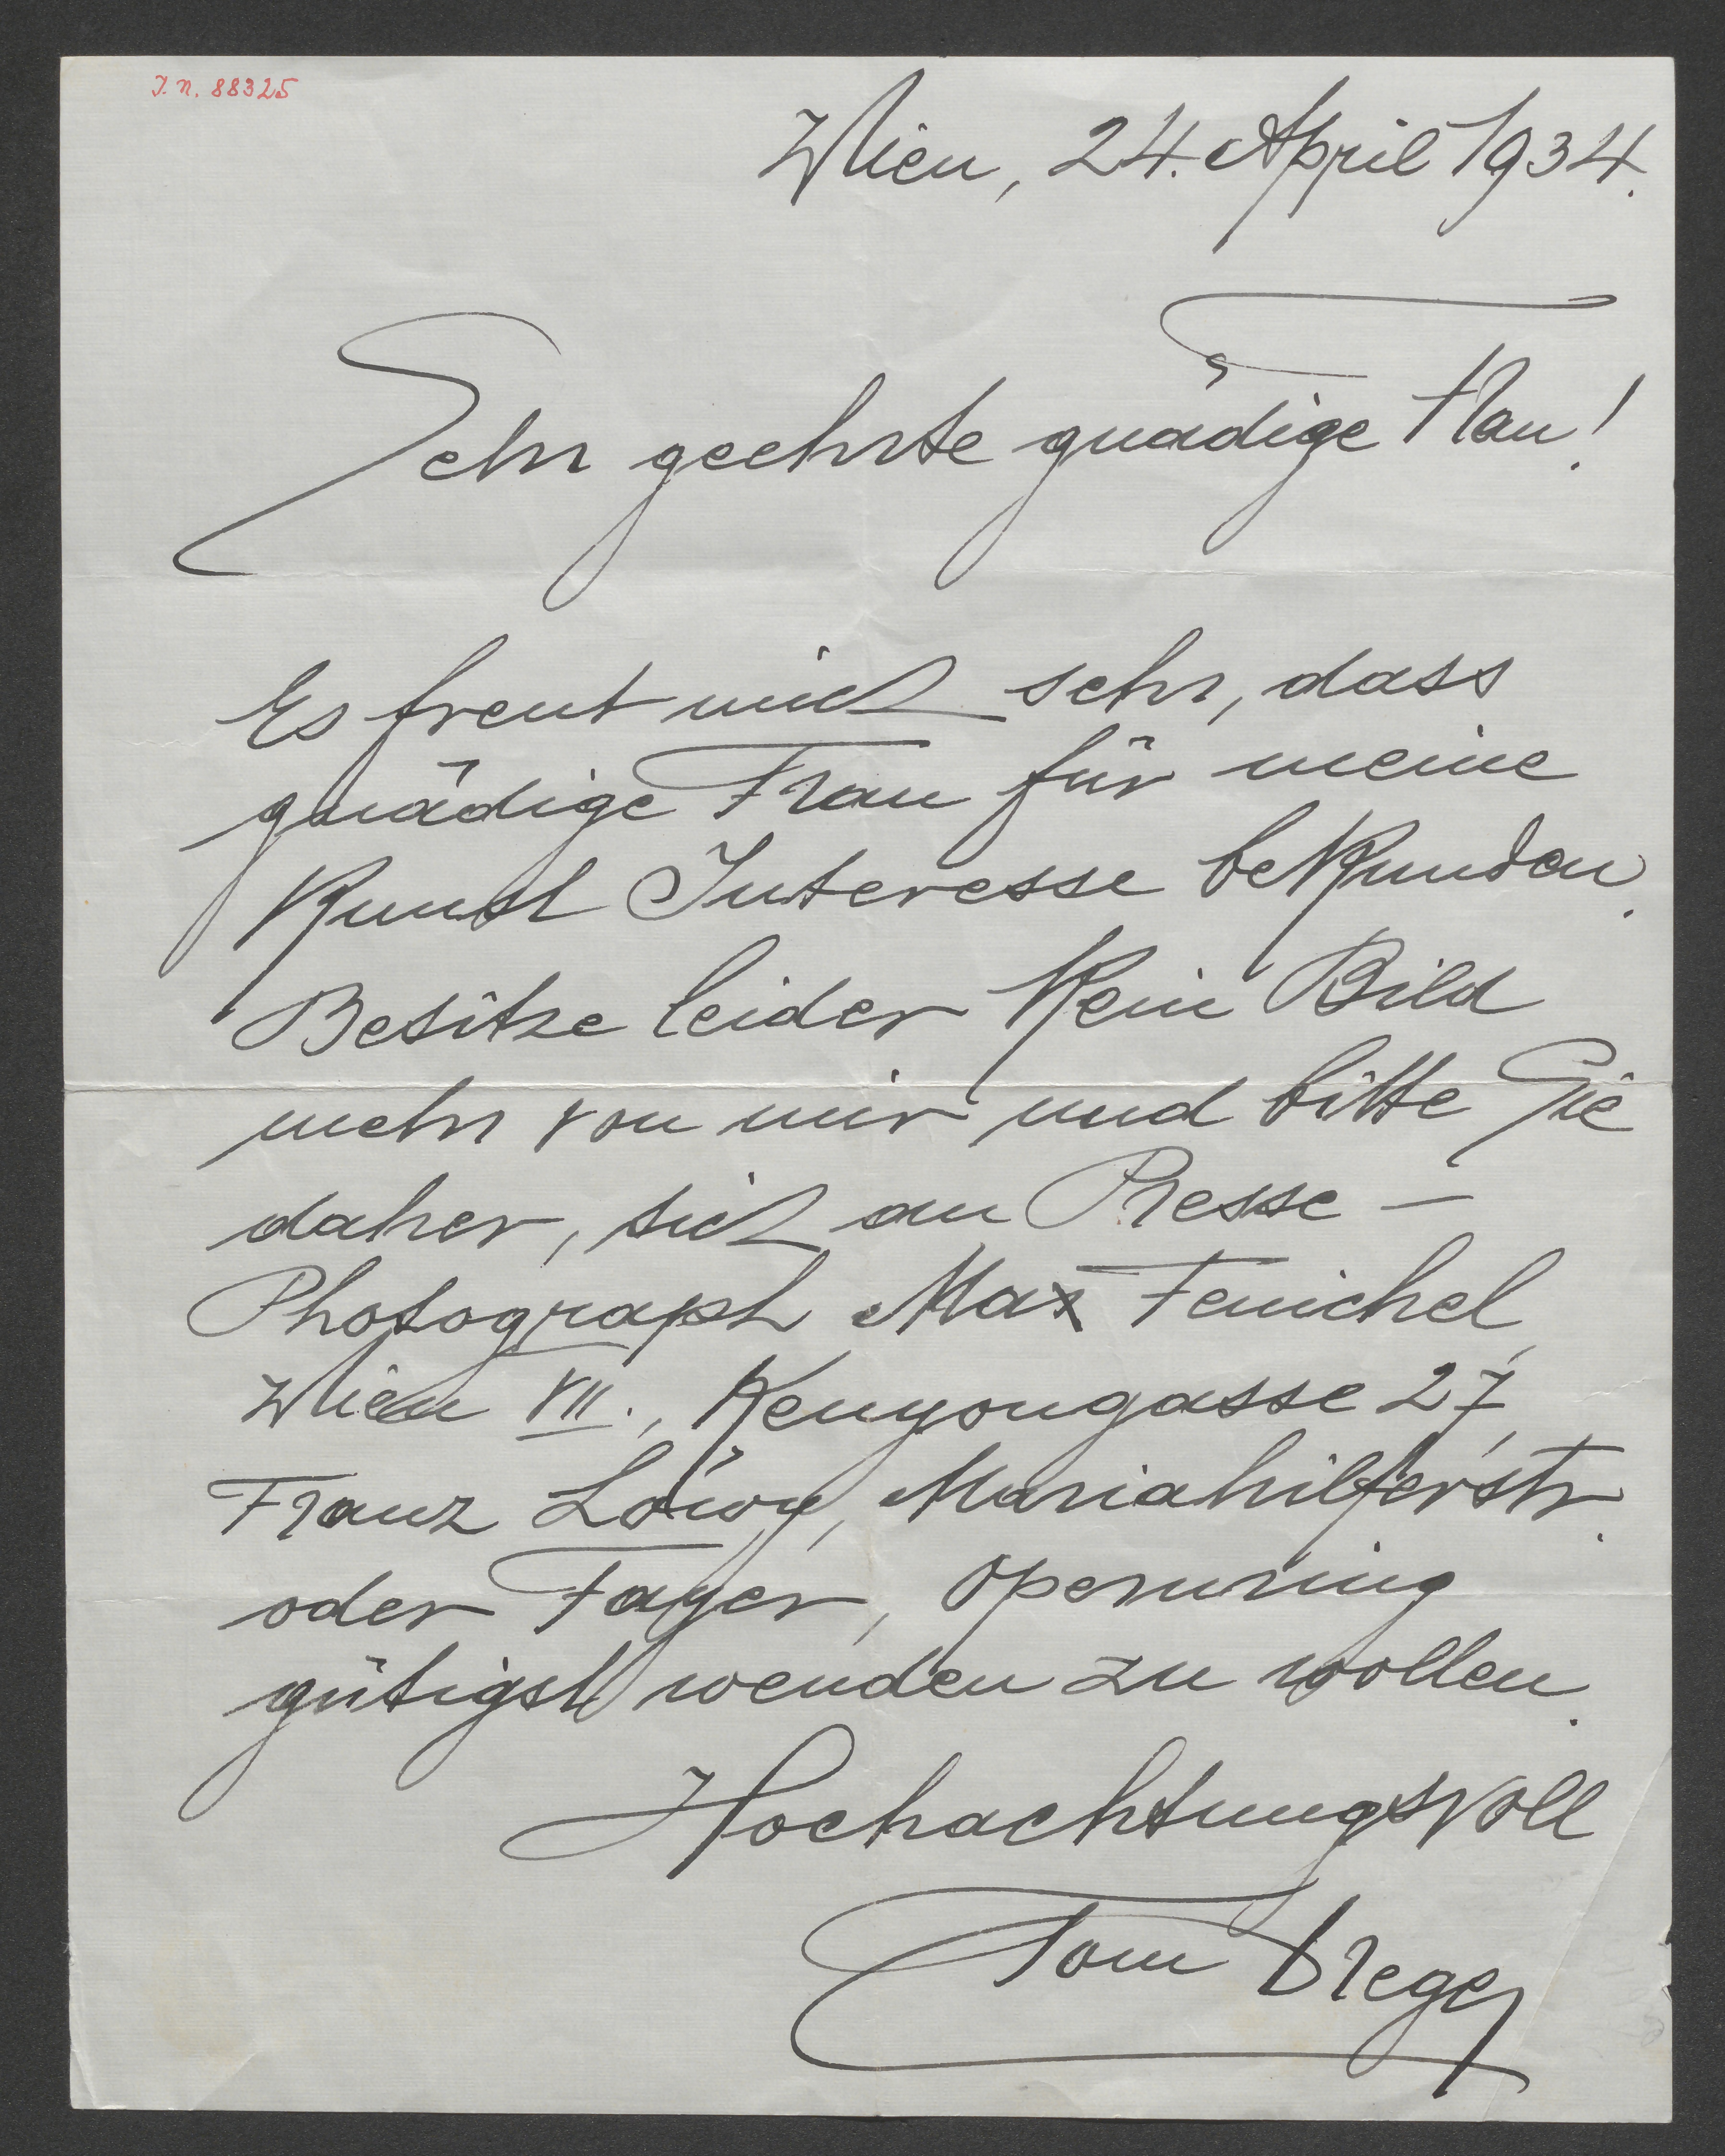 J. N. 88325
Wien, 24. April 1934.
Sehr geehrte gnädige Frau!
Es freut mich sehr, dass
gnädige Frau für meine
Kunst Interesse bekunden.
Besitze leider kein Bild
mehr von mir und bitte Sie
daher, sich an Presse-
Photograph Max Fenichel,
Wien VII., Kenyongasse 27,
Franz Löwy, Mariahilferstr.
oder Fayer, Opernring
gütigst wenden zu wollen.
Hochachtungsvoll
Tom